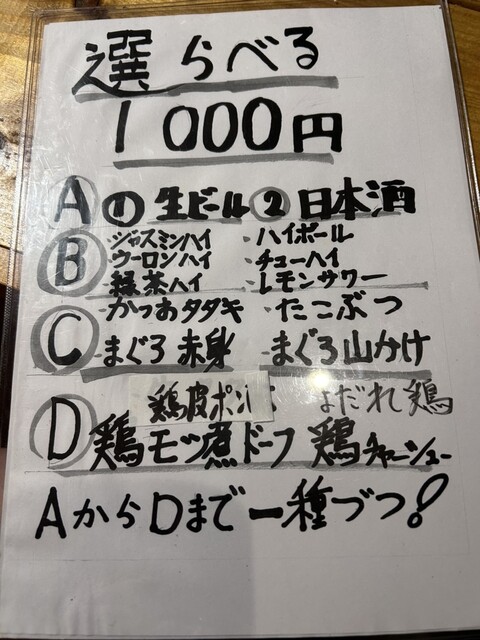 選らべる
1000円
A ① 生ビール ② 日本酒
B ・ジャスミンハイ ・ハイボール
・ウーロンハイ ・チューハイ
・緑茶ハイ ・レモンサワー
C ・かつおタタキ ・たこぶつ
・まぐろ赤身 ・まぐろ山かけ
D 鶏皮ポン酢 よだれ鶏
鶏モツ煮ドーフ 鶏チャーシュー
AからDまで一種づつ!